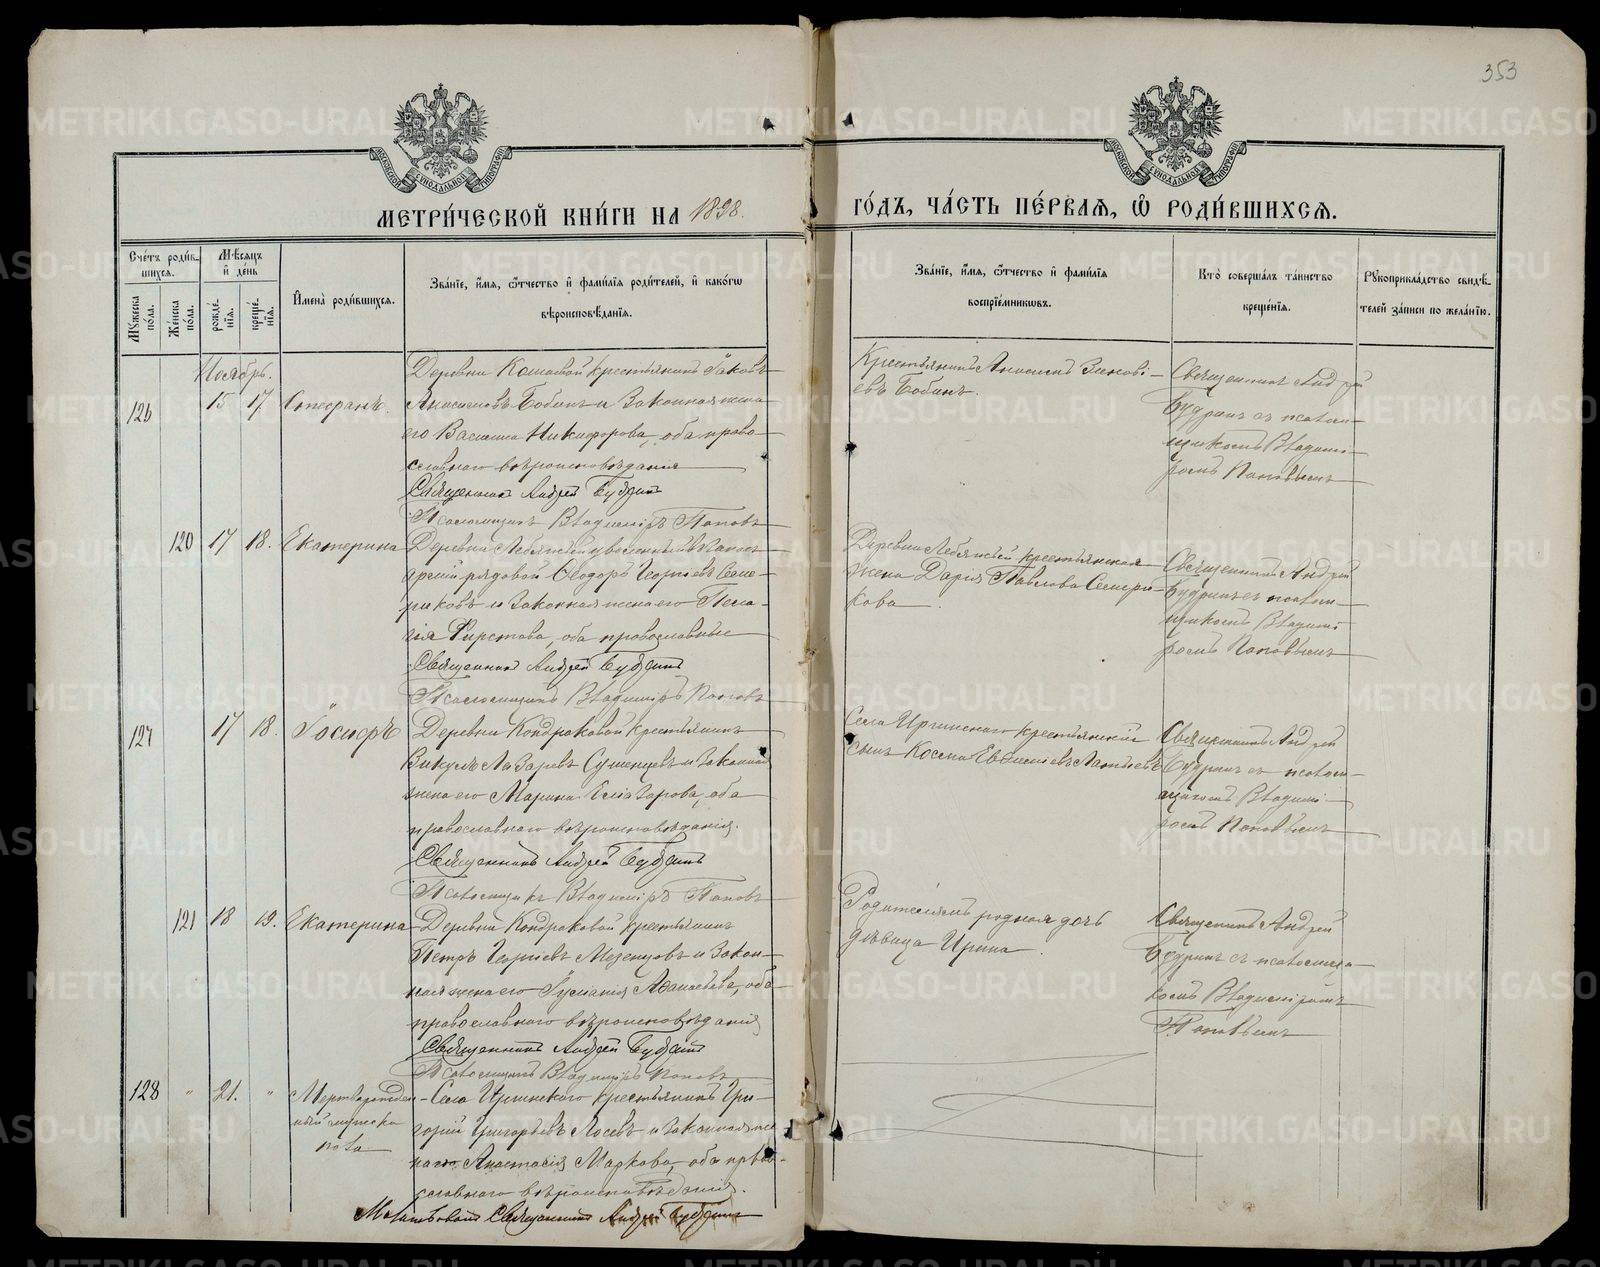 353
МЕТРИ́ЧЕСКОЙ КНИ́ГИ НА 1898.
ГО́ДЪ, ЧА́СТЬ ПЕ́РВАЯ, Ѡ҆ РОДИ́ВШИХСЯ.
Сче́тъ роди́в-
шихся.
Мѣ́сяцъ
и҆ де́нь
Му́жеска
по́ла.
Же́нска
по́ла.
рожде́-
нїя.
креще́-
нїя.
И҆мена̀ роди́вшихся.
Зва́нїе, и҆́мя, ѻ҆́тчество и҆ фами́лїя роди́телей, и҆ како́гѡ
вѣроисповѣ́данїя.
Зва́нїе, и҆́мя, ѻ҆́тчество и҆ фами́лїя
воспрїе́мниковъ.
Кто̀ соверша́лъ та́инство
креще́нїя.
Рꙋкоприкла́дство свидѣ́-
телей за́писи по жела́нїю.
Ноябрь.
126 15 17 Стефанъ.
Деревни Кошаевой крестьянинъ Іаковъ
Анисимовъ Бобинъ и законная жена
его Василиса Никифорова, оба право-
славнаго вѣроисповѣданія
Священникъ Андрей Будринъ
Псаломщикъ Владиміръ Поповъ
Крестьянинъ Анисимъ Зинові-
евъ Бобинъ.
Священникъ Андрей
Будринъ съ псалом-
щикомъ Владимі-
ромъ Поповымъ
120 17 18. Екатерина
Деревни Лебяжьей уволенный въ запас
армiи рядовой Ѳеодоръ Георгіевъ Семе-
риковъ и законная жена его Пела-
гія Фирстова, оба православные
Священникъ Андрей Будринъ
Псаломщикъ Владиміръ Поповъ
Деревни Лебяжьей крестьянская
жена Дарія Павлова Семери-
кова
Священникъ Андрей
Будринъ съ псалом-
щикомъ Владимі-
ромъ Поповымъ
127 17 18. Іосифъ
Деревни Кондраковой крестьянинъ
Викулъ Лазаревъ Сушенцевъ и законная
жена его Марина Елиазарова, оба
православнаго вѣроисповѣданія.
Священникъ Андрей Будринъ
Псаломщикъ Владиміръ Поповъ
Села Иргинскаго крестьянскій
сынъ Косма Евѳиміевъ
Священникъ Андрей
Будринъ съ псалом-
щикомъ Владимі-
ромъ Поповымъ
121 18 19. Екатерина
Деревни Кондраковой крестьянинъ
Петръ Георгіевъ Мезенцовъ и закон-
ная жена его Іуліанія, оба
православнаго вѣроисповѣданія
Священникъ Андрей Будринъ
Псаломщикъ Владиміръ Поповъ
Родителямъ родная дочь
дѣвица Ирина.
Священникъ Андрей
Будринъ съ псаломщи-
комъ Владиміромъ
Поповымъ
128 " 21. " Мертворожден-
ный мужска
пола
Села Иргинскаго крестьянинъ Гри-
горій Григорьевъ Лосевъ и законная же
на его Анастасія Маркова, оба право-
славнаго вѣроисповѣданія.
Священникъ Андрей Будринъ
METRIKI.GASO-URAL.RU